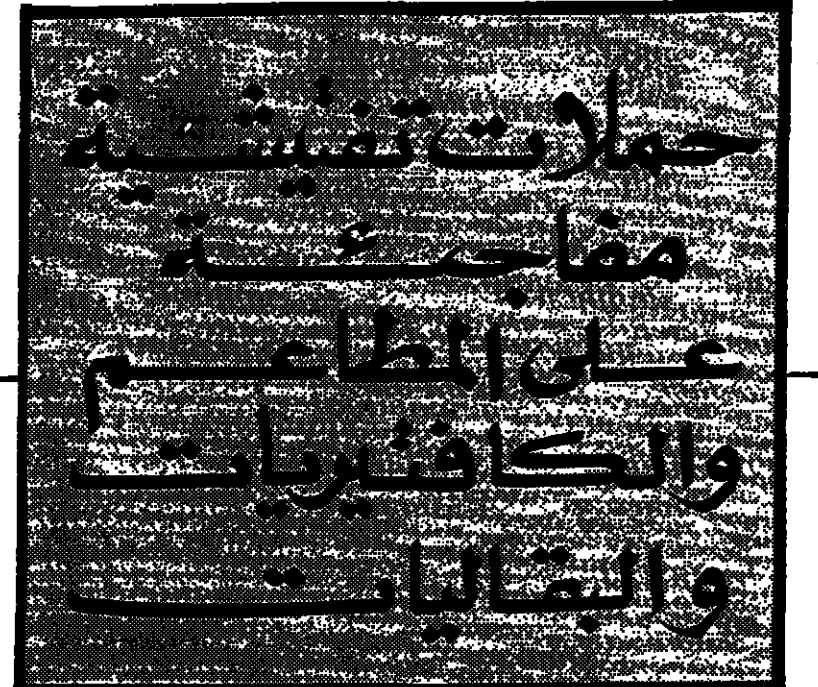 حملات تفتيشية
مفاجئة
على المطاعم
والكافتيريات
والبقاليات